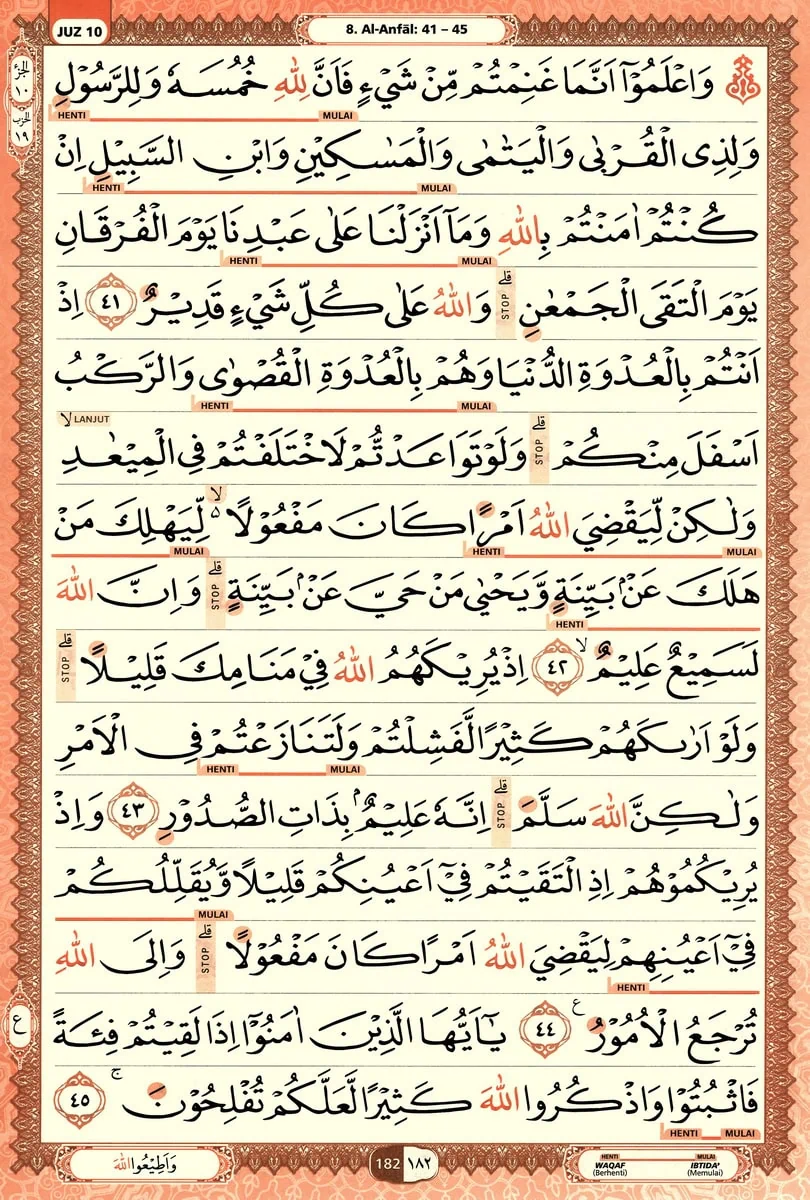 JUZ 10
8. Al-Anfāl: 41 – 45
الجزء
١٠
الحزب
١٩
وَاعْلَمُوْٓا اَنَّمَا غَنِمْتُمْ مِّنْ شَيْءٍ فَاَنَّ لِلّٰهِ خُمُسَهٗ وَلِلرَّسُوْلِ
HENTI MULAI
وَلِذِى الْقُرْبٰى وَالْيَتٰمٰى وَالْمَسٰكِيْنِ وَابْنِ السَّبِيْلِ اِنْ
HENTI MULAI
كُنْتُمْ اٰمَنْتُمْ بِاللّٰهِ وَمَآ اَنْزَلْنَا عَلٰى عَبْدِنَا يَوْمَ الْفُرْقَانِ
HENTI MULAI
يَوْمَ الْتَقَى الْجَمْعٰنِ ۗ STOP وَاللّٰهُ عَلٰى كُلِّ شَيْءٍ قَدِيْرٌ ٤١ اِذْ
اَنْتُمْ بِالْعُدْوَةِ الدُّنْيَا وَهُمْ بِالْعُدْوَةِ الْقُصْوٰى وَالرَّكْبُ
HENTI MULAI
اَسْفَلَ مِنْكُمْ ۗ STOP وَلَوْ تَوَاعَدْتُّمْ لَاخْتَلَفْتُمْ فِى الْمِيْعٰدِ ۙ LANJUT
وَلٰكِنْ لِّيَقْضِيَ اللّٰهُ اَمْرًا كَانَ مَفْعُوْلًا ەۙ لِّيَهْلِكَ مَنْ
MULAI HENTI MULAI
هَلَكَ عَنْۢ بَيِّنَةٍ وَّيَحْيٰى مَنْ حَيَّ عَنْۢ بَيِّنَةٍ ۗ STOP وَاِنَّ اللّٰهَ
HENTI
لَسَمِيْعٌ عَلِيْمٌ ۙ ٤٢ اِذْ يُرِيْكَهُمُ اللّٰهُ فِيْ مَنَامِكَ قَلِيْلًا ۗ STOP
وَلَوْ اَرٰىكَهُمْ كَثِيْرًا لَّفَشِلْتُمْ وَلَتَنَازَعْتُمْ فِى الْاَمْرِ
HENTI MULAI
وَلٰكِنَّ اللّٰهَ سَلَّمَ ۗ STOP اِنَّهٗ عَلِيْمٌۢ بِذَاتِ الصُّدُوْرِ ٤٣ وَاِذْ
يُرِيْكُمُوْهُمْ اِذِ الْتَقَيْتُمْ فِيْٓ اَعْيُنِكُمْ قَلِيْلًا وَّيُقَلِّلُكُمْ
MULAI
فِيْٓ اَعْيُنِهِمْ لِيَقْضِيَ اللّٰهُ اَمْرًا كَانَ مَفْعُوْلًا ۗ STOP وَاِلَى اللّٰهِ
HENTI
تُرْجَعُ الْاُمُوْرُ ࣖ ٤٤ يٰٓاَيُّهَا الَّذِيْنَ اٰمَنُوْٓا اِذَا لَقِيْتُمْ فِئَةً
ع
فَاثْبُتُوْا وَاذْكُرُوا اللّٰهَ كَثِيْرًا لَّعَلَّكُمْ تُفْلِحُوْنَ ۚ ٤٥
HENTI MULAI
وَاَطِيْعُوا اللّٰهَ
182 ١٨٢
HENTI MULAI
WAQAF IBTIDA'
(Berhenti) (Memulai)